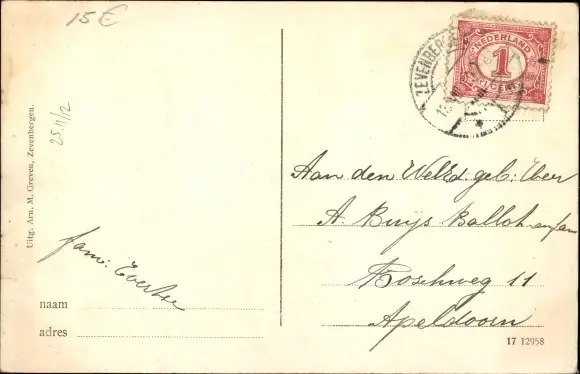 15 €
25/11/12
Uitg. Arn. M. Greven, Zevenbergen.
fam: Evertse
naam
adres
ZEVENBERGEN
NEDERLAND
1
CENT
Aan den WelEd: geb: Heer
A. Buijs Ballot en fam
Boschweg 11
Apeldoorn
17 12958